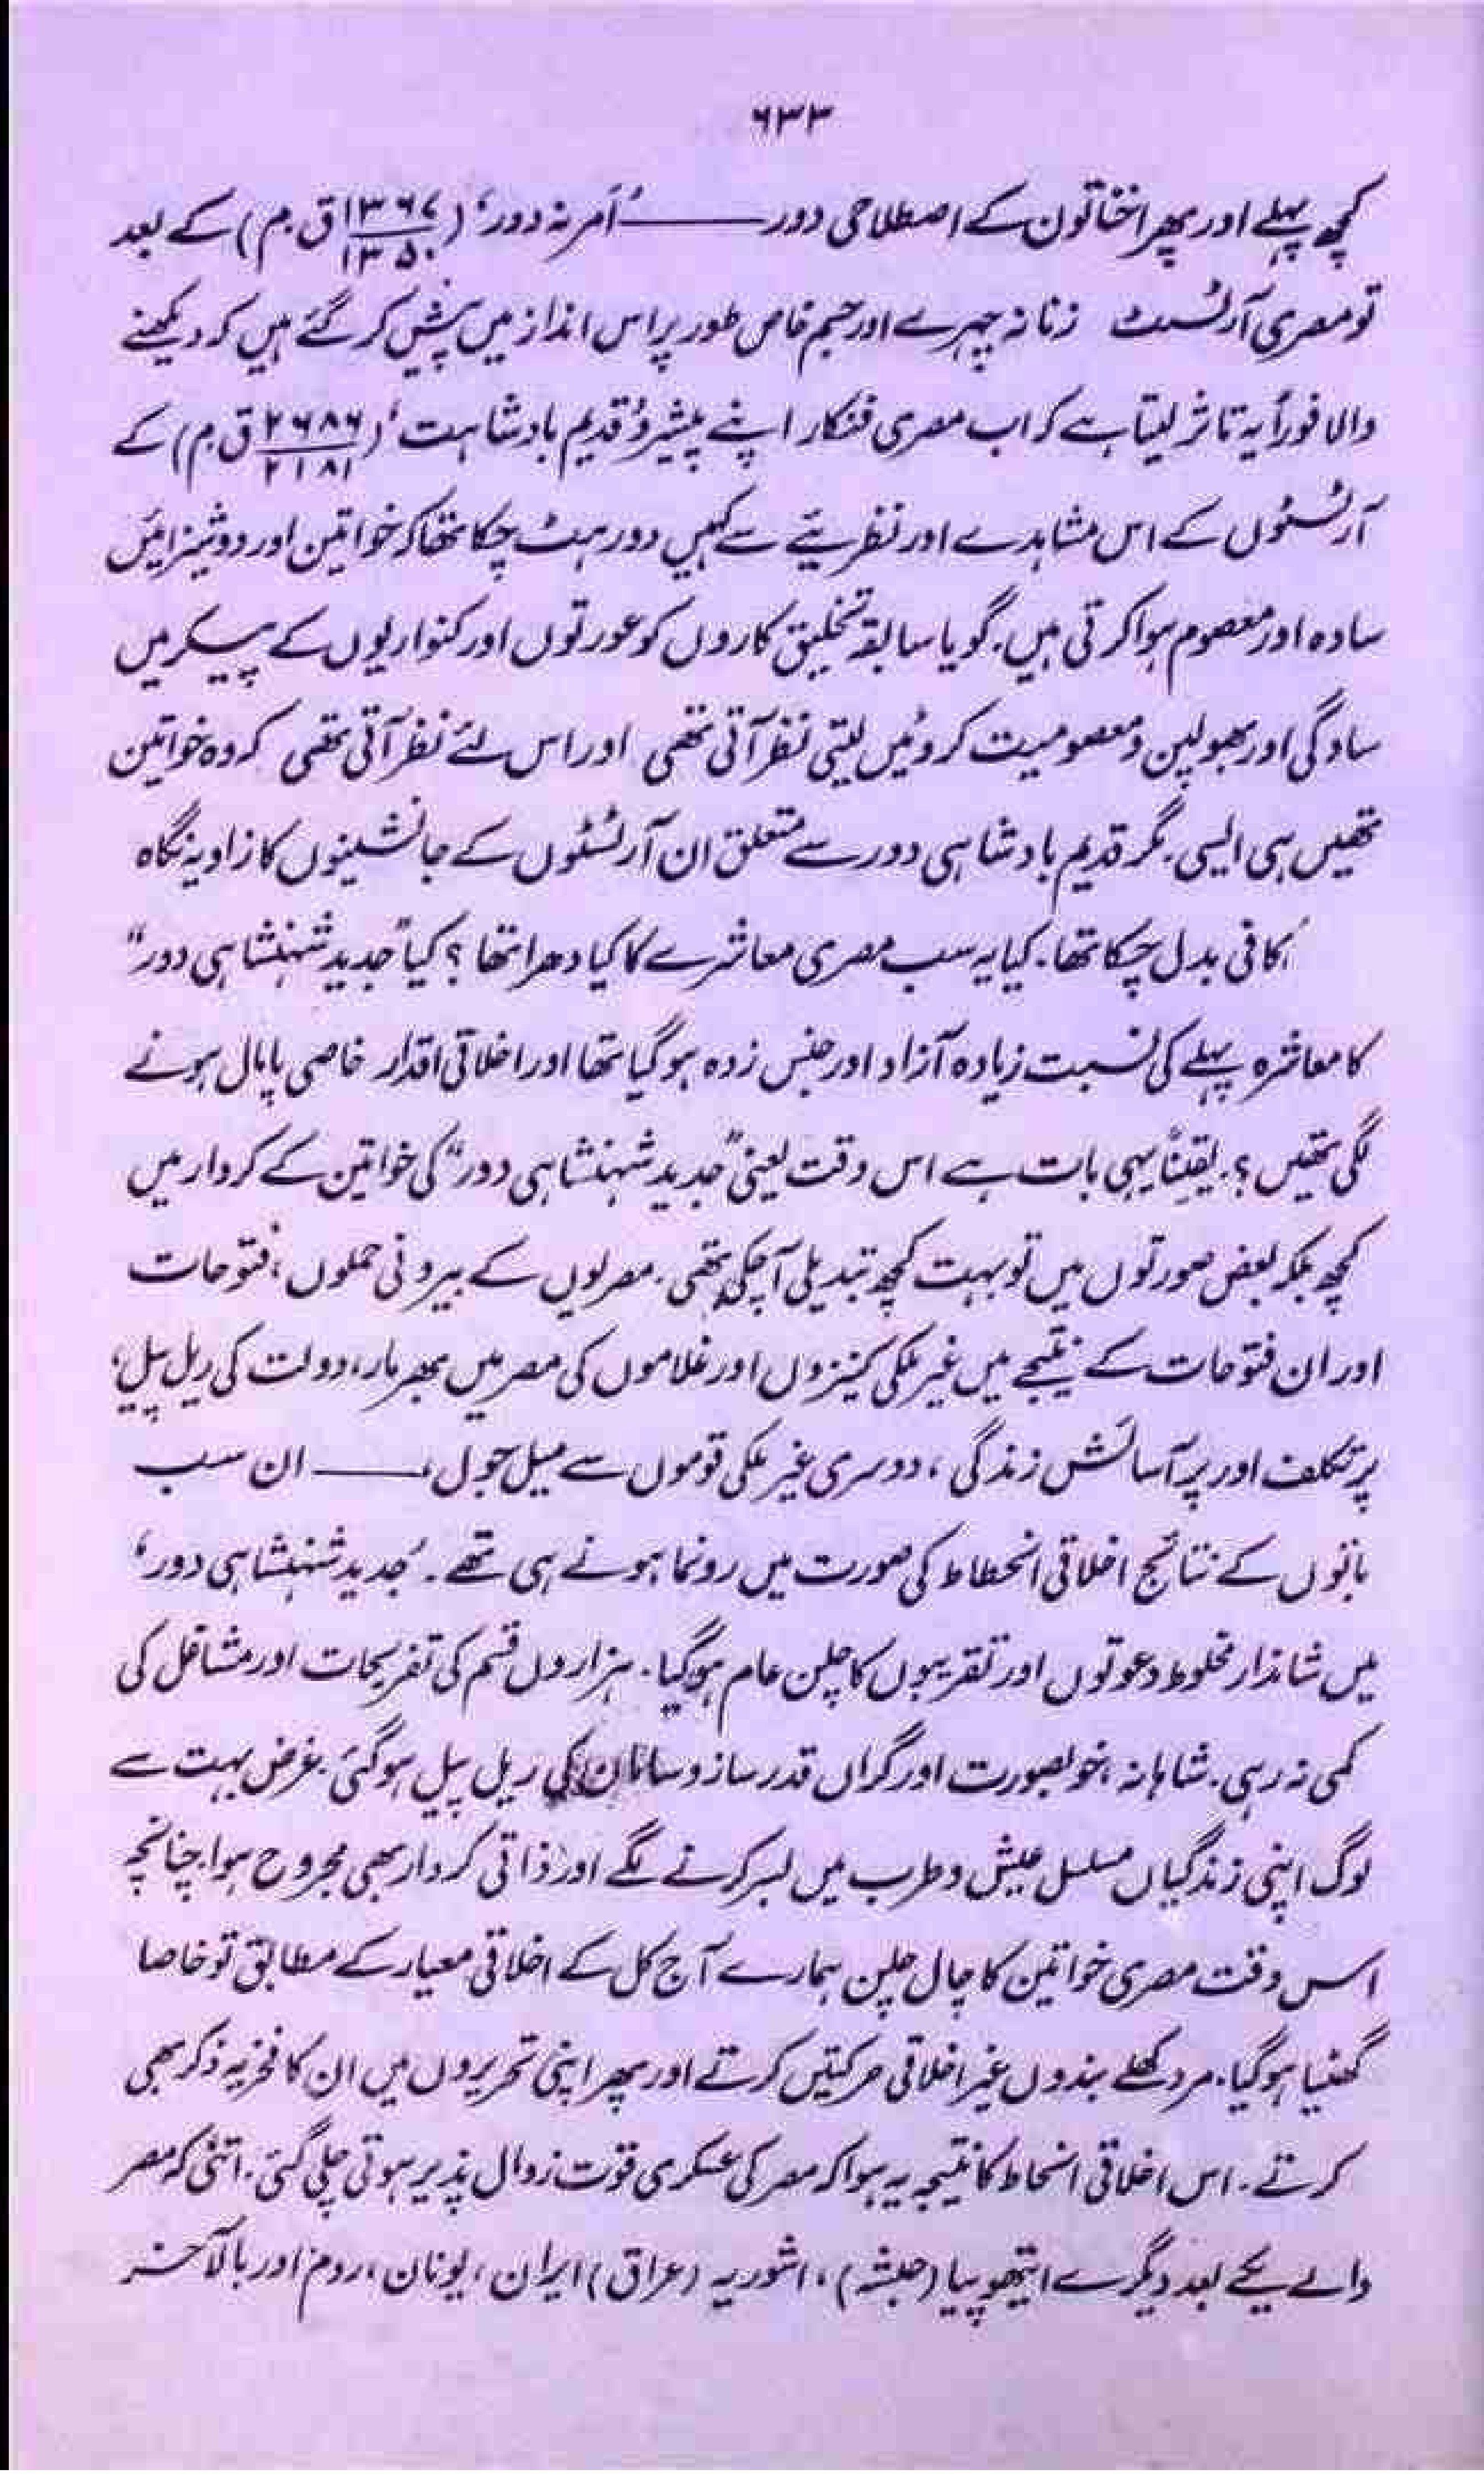 ۶۳۳
کچھ پہلے اور پھر اخناتون کے اصطلاحی دور ——— ’اَمرنہ دور‘ (۱۳۶۷/۱۳۵۰ ق.م) کے بعد
تو مصری آرٹسٹ زنانہ چہرے اور جسم خاص طور پر اس انداز میں پیش کر گئے ہیں کہ دیکھنے
والا فوراً یہ تاثر لیتا ہے کہ اب مصری فنکار اپنے پیشرو ’قدیم بادشاہت‘ (۲۶۸۶/۲۱۸۱ ق.م) کے
آرٹسٹوں کے اس مشاہدے اور نظریئے سے کہیں دور ہٹ چکا تھا کہ خواتین اور دوشیزائیں
سادہ اور معصوم ہوا کرتی ہیں. گویا سابقہ تخلیق کاروں کو عورتوں اور کنواریوں کے پیکر میں
سادگی اور بھولپن و معصومیت کروٹیں لیتی نظر آتی تھی اور اس لئے نظر آتی تھی کہ وہ خواتین
تھیں ہی ایسی. مگر قدیم بادشاہی دور سے متعلق ان آرٹسٹوں کے جانشینوں کا زاویہ نگاہ
کافی بدل چکا تھا. کیا یہ سب مصری معاشرے کا کیا دھرا تھا؟ کیا ”جدید شہنشاہی دور“
کا معاشرہ پہلے کی نسبت زیادہ آزاد اور جنس زدہ ہو گیا تھا اور اخلاقی اقدار خاصی پامال ہونے
لگی تھیں؟. یقیناً یہی بات ہے اس وقت یعنی ”جدید شہنشاہی دور“ کی خواتین کے کردار میں
کچھ بلکہ بعض صورتوں میں تو بہت کچھ تبدیلی آ چکی تھی. مصریوں کے بیرونی حملوں، فتوحات
اور ان فتوحات کے نتیجے میں غیر ملکی کنیزوں اور غلاموں کی مصر میں بھرمار، دولت کی ریل پیل،
پرتکلف اور پرآسائش زندگی، دوسری غیر ملکی قوموں سے میل جول، ——— ان سب
باتوں کے نتائج اخلاقی انحطاط کی صورت میں رونما ہونے ہی تھے۔ ’جدید شہنشاہی دور‘
میں شاندار مخلوط دعوتوں اور تقریبوں کا چلن عام ہو گیا. ہزاروں قسم کی تفریحات اور مشاغل کی
کمی نہ رہی. شاہانہ، خوبصورت اور گراں قدر ساز و سامان کی ریل پیل ہو گئی. غرض بہت سے
لوگ اپنی زندگیاں مسلسل عیش و طرب میں بسر کرنے لگے اور ذاتی کردار بھی مجروح ہوا. چنانچہ
اس وقت مصری خواتین کا چال چلن ہمارے آج کل کے اخلاقی معیار کے مطابق تو خاصا
گھٹیا ہو گیا. مرد کھلے بندوں غیر اخلاقی حرکتیں کرتے اور پھر اپنی تحریروں میں ان کا فخریہ ذکر بھی
کرتے. اس اخلاقی انحاط کا نتیجہ یہ ہوا کہ مصر کی عسکری قوت زوال پذیر ہوتی چلی گئی. اتنی کہ مصر
والے یکے بعد دیگرے ایتھوپیا (حبشہ)، اشوریہ (عراق) ایران، یونان، روم اور بالآخر